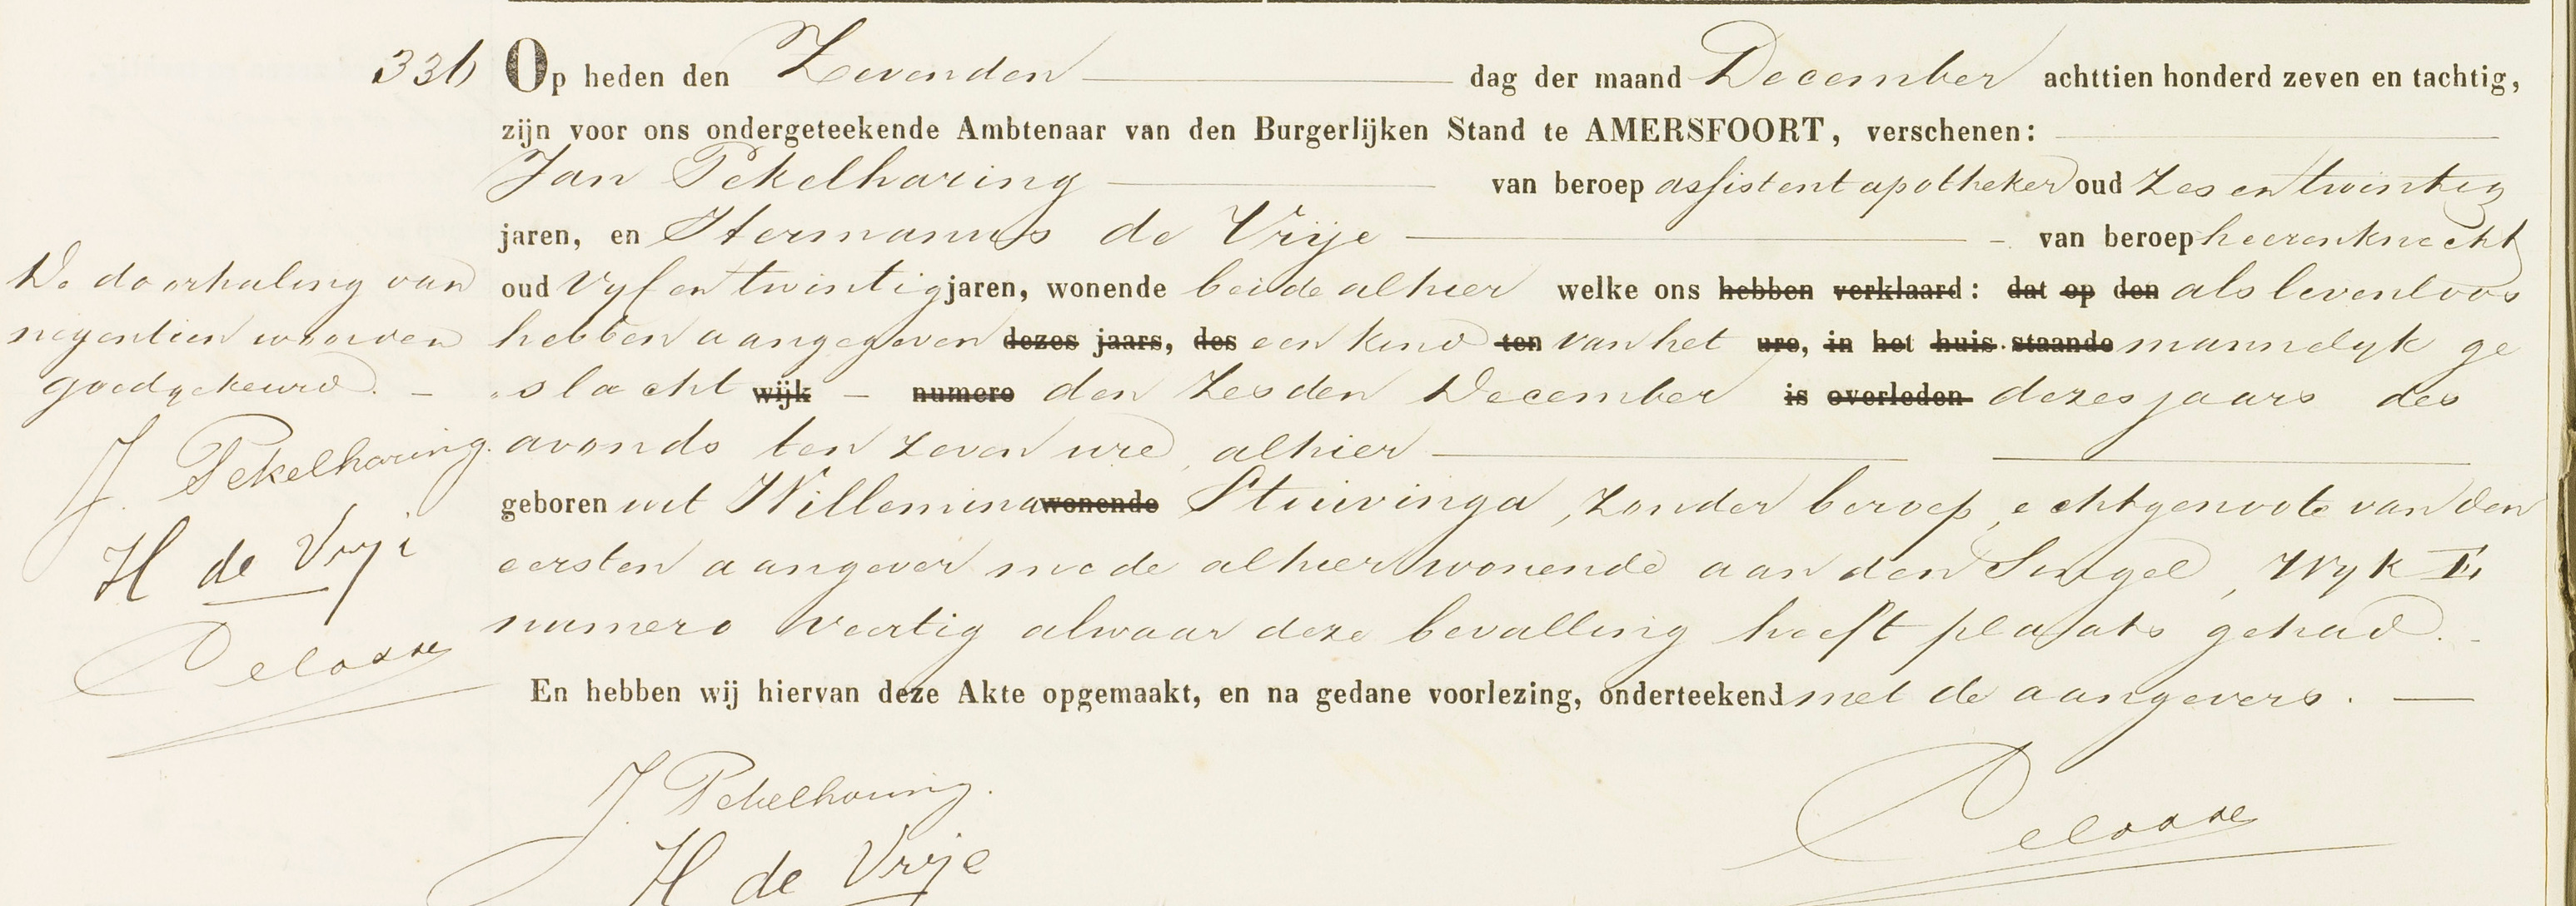 336
Op heden den Zevenden dag der maand December achttien honderd zeven en tachtig,
zijn voor ons ondergeteekende Ambtenaar van den Burgerlijken Stand te AMERSFOORT, verschenen:
Jan Pekelharing van beroep assistent apotheker oud Zes en twintig
jaren, en Hermanus de Vrije van beroep heerenknecht
oud Vijf en twintig jaren, wonende beide alhier welke ons hebben verklaard: dat op den als levenloos
hebben aangegeven dezes jaars, des een kind ten van het ure, in het huis staande mannelijk ge
slacht wijk - numero den Zesden December is overleden dezes jaars des
avonds ten zeven ure, alhier
geboren uit Willemina wonende Stuivinga, zonder beroep, echtgenoote van den
eersten aangever mede alhier wonende aan den Singel, Wyk E,
numero veertig alwaar deze bevalling heeft plaats gehad.
En hebben wij hiervan deze Akte opgemaakt, en na gedane voorlezing, onderteekend met de aangevers.
De doorhaling van
negentien woorden
goedgekeurd. -
J. Pekelharing.
H de Vrije
J. Pekelharing.
H de Vrije